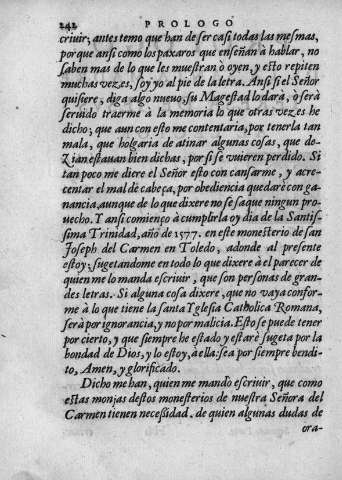 242 PROLOGO
criuir; antes temo que han de ser casi todas las mesmas,
porque ansi como los paxaros que enseñan à hablar, no
saben mas de lo que les muestran ò oyen, y esto repiten
muchas vezes, soy yo al pie de la letra. Ansi si el Señor
quisiere, diga algo nueuo, su Magestad lo darà, ò serà
seruido traerme à la memoria lo que otras vezes he
dicho; que aun con esto me contentaria, por tenerla tan
mala, que holgaria de atinar algunas cosas, que de-
zian estauan bien dichas, por si se vuieren perdido. Si
tan poco me diere el Señor esto con cansarme, y acre-
centar el mal de cabeça, por obediencia quedarè con ga-
nancia, aunque de lo que dixere no se saque ningun pro-
uecho. Y ansi comienço à cumplirla oy dia de la Santis-
sima Trinidad, año de 1577. en este monesterio de san
Joseph del Carmen en Toledo, adonde al presente
estoy; sugetandome en todo lo que dixere à el parecer de
quien me lo manda escriuir, que son personas de gran-
des letras. Si alguna cosa dixere, que no vaya confor-
me à lo que tiene la santa Yglesia Catholica Romana,
serà por ignorancia, y no por malicia. Esto se puede tener
por cierto, y que siempre he estado y estarè sugeta por la
bondad de Dios, y lo estoy, à ella: sea por siempre bendi-
to, Amen, y glorificado.
Dicho me han, quien me mandò escriuir, que como
estas monjas destos monesterios de nuestra Señora del
Carmen tienen necessidad, de quien algunas dudas de
ora-